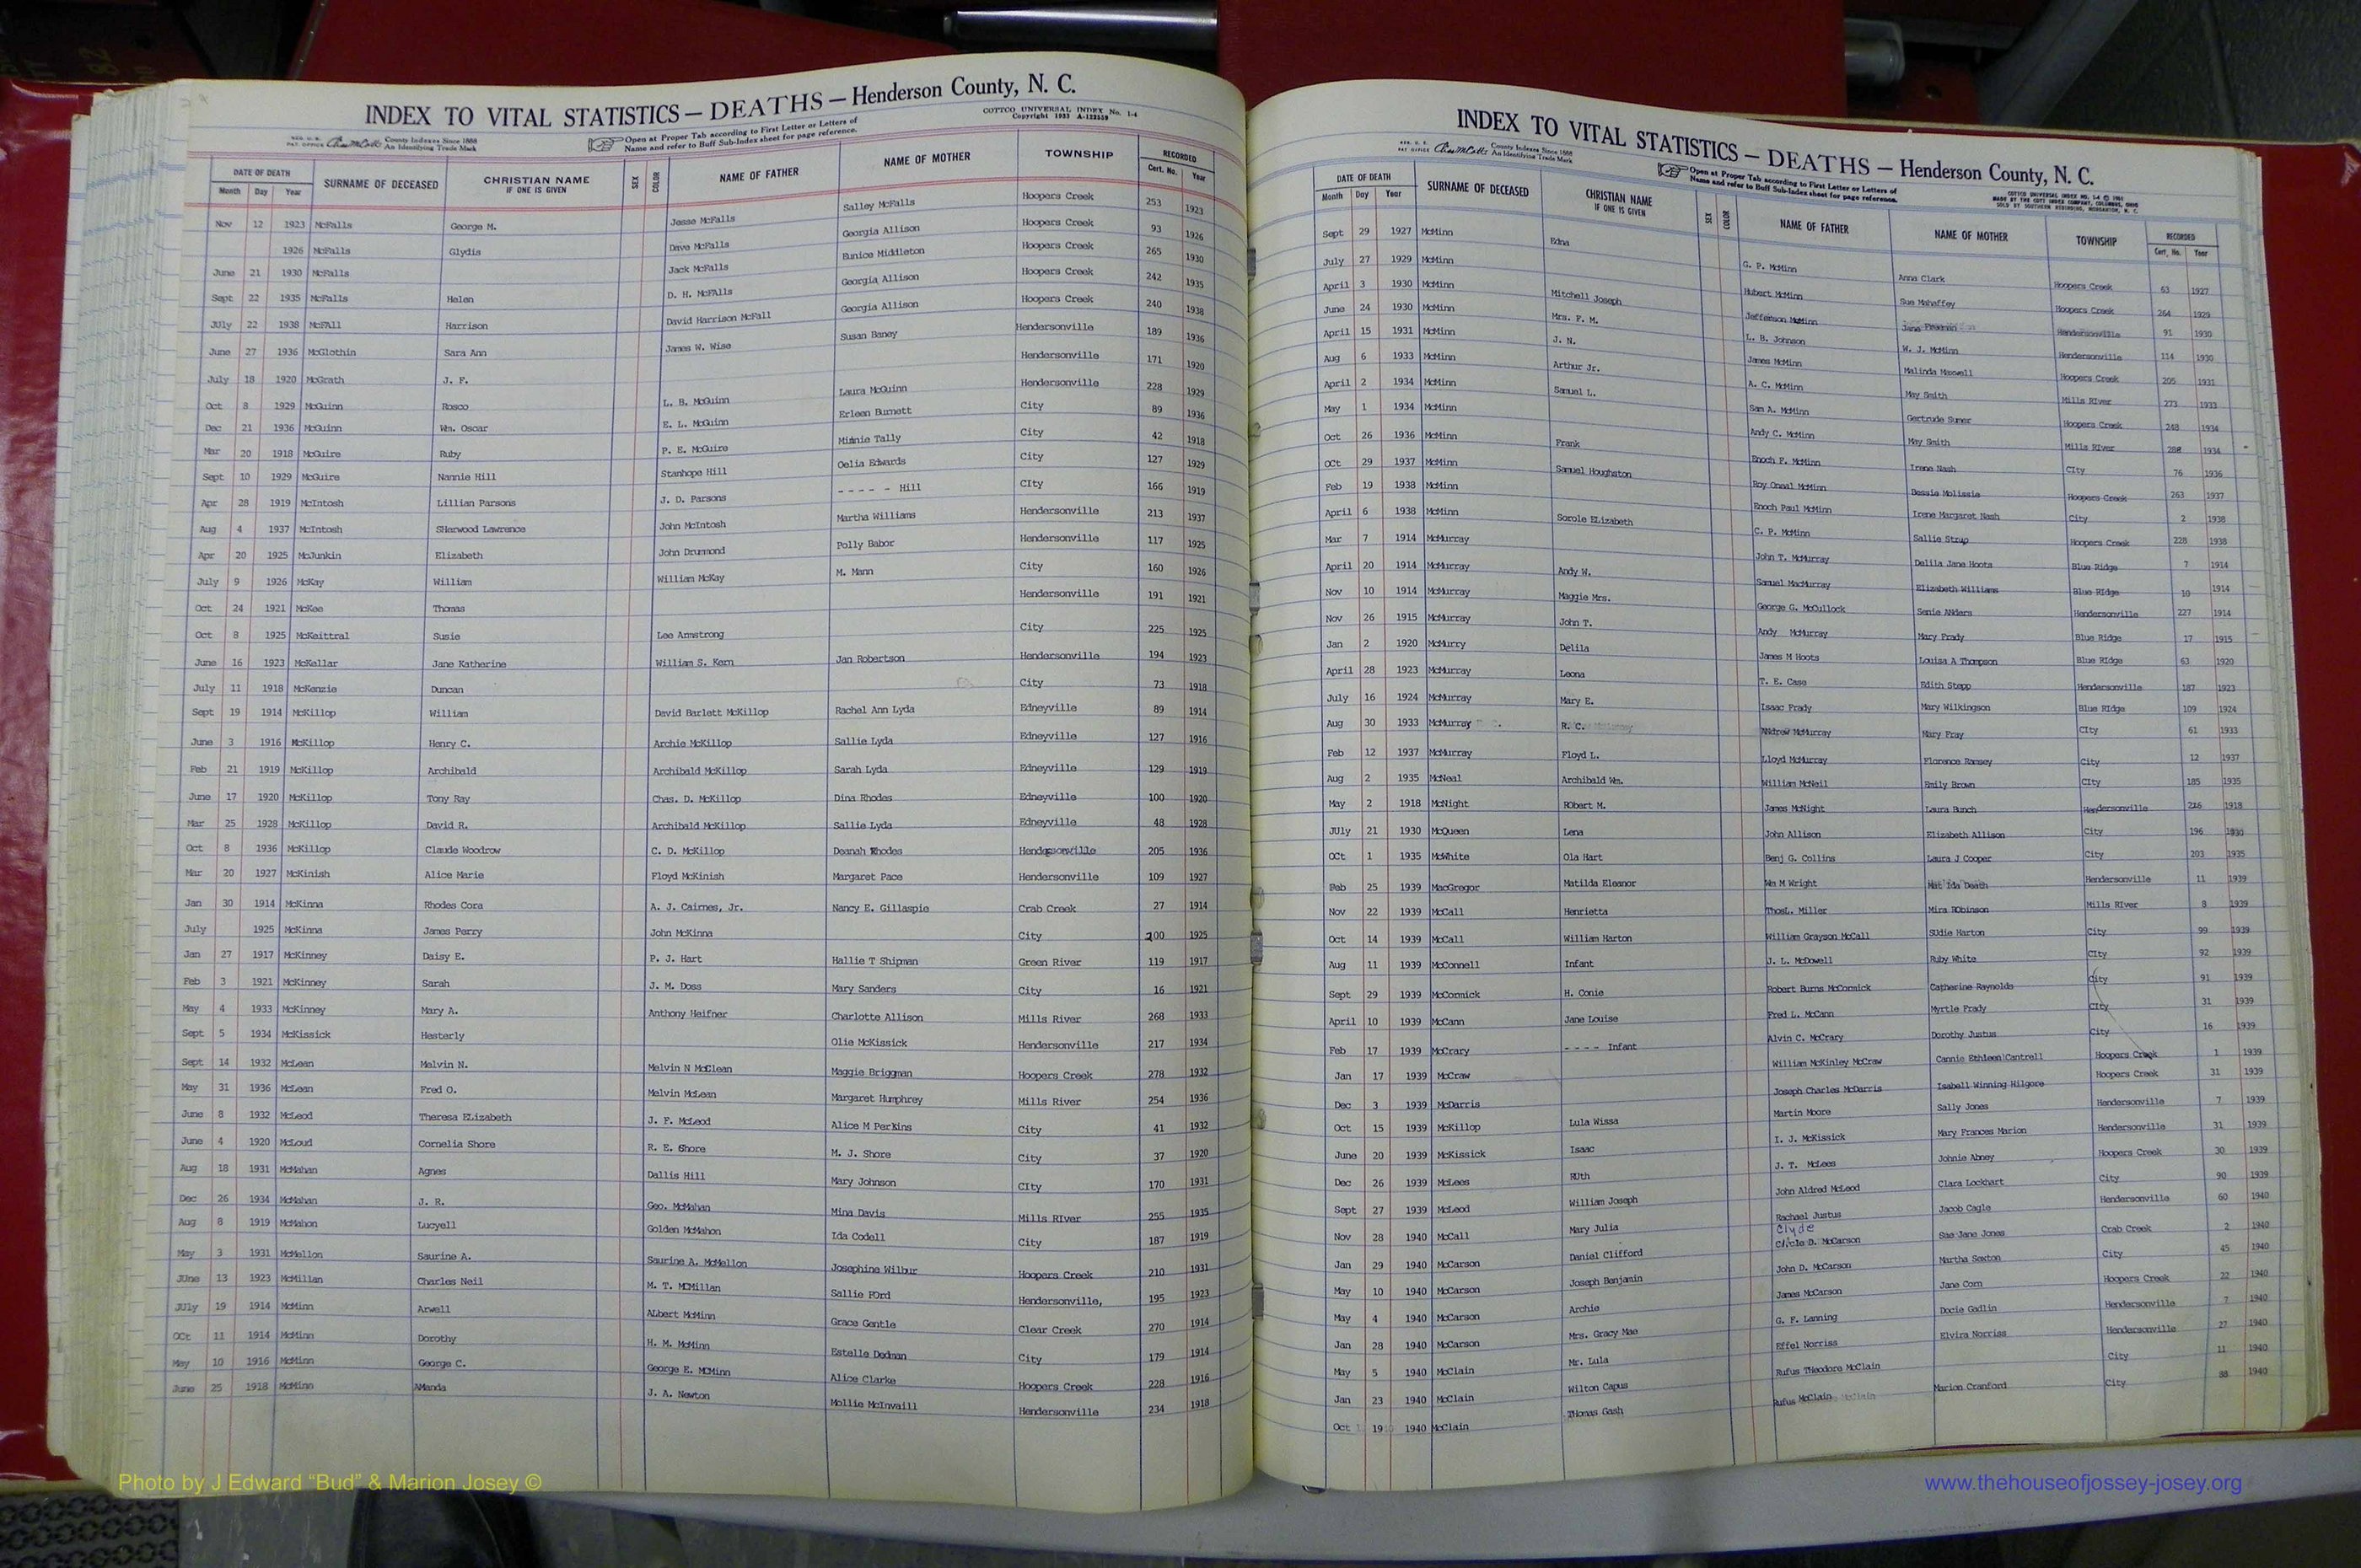 INDEX TO VITAL STATISTICS — DEATHS — Henderson County, N. C.
COTTCO UNIVERSAL INDEX No. 1-4
Copyright 1933 A-132559
County Indexes Since 1888
An Identifying Trade Mark
Open at Proper Tab according to First Letter or Letters of
Name and refer to Buff Sub-Index sheet for page reference.
DATE OF DEATH Month Day Year SURNAME OF DECEASED CHRISTIAN NAME IF ONE IS GIVEN SEX COLOR NAME OF FATHER NAME OF MOTHER TOWNSHIP RECORDED Cert. No. Year
Nov 12 1923 McFalls George M. Jesse McFalls Salley McFalls Hoopers Creek 253 1923
1926 McFalls Glydis Dave McFalls Georgia Allison Hoopers Creek 93 1926
June 21 1930 McFalls Jack McFalls Eunice Middleton Hoopers Creek 265 1930
Sept 22 1935 McFalls Helen D. H. McFAlls Georgia Allison Hoopers Creek 242 1935
JUly 22 1938 McFAll Harrison David Harrison McFall Georgia Allison Hoopers Creek 240 1938
June 27 1936 McGlothin Sara Ann James W. Wise Susan Baney Hendersonville 189 1936
July 18 1920 McGrath J. F. Hendersonville 171 1920
Oct 8 1929 McGuinn Rosco L. B. McGuinn Laura McGuinn Hendersonville 228 1929
Dec 21 1936 McGuinn Wm. Oscar E. L. McGuinn Erleen Burnett City 89 1936
Mar 20 1918 McGuire Ruby P. E. McGuire Minnie Tally City 42 1918
Sept 10 1929 McGuire Nannie Hill Stanhope Hill Oelia Edwards City 127 1929
Apr 28 1919 McIntosh Lillian Parsons J. D. Parsons - - - - - Hill CIty 166 1919
Aug 4 1937 McIntosh SHerwood Lawrence John McIntosh Martha Williams Hendersonville 213 1937
Apr 20 1925 McJunkin Elizabeth John Drummond Polly Babor Hendersonville 117 1925
July 9 1926 McKay William William McKay M. Mann City 160 1926
Oct 24 1921 McKee Thomas Hendersonville 191 1921
Oct 8 1925 McKeittral Susie Lee Armstrong City 225 1925
June 16 1923 McKellar Jane Katherine William S. Kern Jan Robertson Hendersonville 194 1923
July 11 1918 McKenzie Duncan City 73 1918
Sept 19 1914 McKillop William David Barlett McKillop Rachel Ann Lyda Edneyville 89 1914
June 3 1916 McKillop Henry C. Archie McKillop Sallie Lyda Edneyville 127 1916
Feb 21 1919 McKillop Archibald Archibald McKillop Sarah Lyda Edneyville 129 1919
June 17 1920 McKillop Tony Ray Chas. D. McKillop Dina Rhodes Edneyville 100 1920
Mar 25 1928 McKillop David R. Archibald McKillop Sallie Lyda Edneyville 48 1928
Oct 8 1936 McKillop Claude Woodrow C. D. McKillop Deanah Rhodes Hendersonville 205 1936
Mar 20 1927 McKinish Alice Marie Floyd McKinish Margaret Pace Hendersonville 109 1927
Jan 30 1914 McKinna Rhodes Cora A. J. Cairnes, Jr. Nancy E. Gillaspie Crab Creek 27 1914
July 1925 McKinna James Perry John McKinna City 200 1925
Jan 27 1917 McKinney Daisy E. P. J. Hart Hallie T Shipman Green River 119 1917
Feb 3 1921 McKinney Sarah J. M. Doss Mary Sanders City 16 1921
May 4 1933 McKinney Mary A. Anthony Heifner Charlotte Allison Mills River 268 1933
Sept 5 1934 McKissick Hesterly Olie McKissick Hendersonville 217 1934
Sept 14 1932 McLean Melvin N. Melvin N McClean Maggie Briggman Hoopers Creek 278 1932
May 31 1936 McLean Fred O. Melvin McLean Margaret Humphrey Mills River 254 1936
June 8 1932 McLeod Theresa ELizabeth J. F. McLeod Alice M Perkins City 41 1932
June 4 1920 McLoud Cornelia Shore R. E. Shore M. J. Shore City 37 1920
Aug 18 1931 McMahan Agnes Dallis Hill Mary Johnson CIty 170 1931
Dec 26 1934 McMahan J. R. Geo. McMahan Mina Davis Mills RIver 255 1935
Aug 8 1919 McMahon Lucyell Golden McMahon Ida Codell City 187 1919
May 3 1931 McMellon Saurine A. Saurine A. McMellon Josephine Wilbur Hoopers Creek 210 1931
JUne 13 1923 McMillan Charles Neil M. T. MCMillan Sallie FOrd Hendersonville, 195 1923
JUly 19 1914 McMinn Arwell ALbert McMinn Grace Gentle Clear Creek 270 1914
OCt 11 1914 McMinn Dorothy H. M. McMinn Estelle Dedman City 179 1914
May 10 1916 McMinn George C. George E. MCMinn Alice Clarke Hoopers Creek 228 1916
June 25 1918 McMinn AManda J. A. Newton Mollie McInvaill Hendersonville 234 1918
INDEX TO VITAL STATISTICS — DEATHS — Henderson County, N. C.
County Indexes Since 1888
An Identifying Trade Mark
Open at Proper Tab according to First Letter or Letters of
Name and refer to Buff Sub-Index sheet for page reference.
DATE OF DEATH Month Day Year SURNAME OF DECEASED CHRISTIAN NAME IF ONE IS GIVEN SEX COLOR NAME OF FATHER NAME OF MOTHER TOWNSHIP RECORDED Cert. No. Year
Sept 29 1927 McMinn Edna G. P. McMinn Anna Clark Hoopers Creek 63 1927
July 27 1929 McMinn Hubert McMinn Sue Mahaffey Hoopers Creek 264 1929
April 3 1930 McMinn Mitchell Joseph Jefferson McMinn Jane Freeman Hendersonville 91 1930
June 24 1930 McMinn Mrs. F. M. L. B. Johnson W. J. McMinn Hendersonville 114 1930
April 15 1931 McMinn J. N. James McMinn Malinda Maxwell Hoopers Creek 205 1931
Aug 6 1933 McMinn Arthur Jr. A. C. McMinn May Smith Mills RIver 273 1933
April 2 1934 McMinn Samuel L. Sam A. McMinn Gertrude Suner Hoopers Creek 248 1934
May 1 1934 McMinn Andy C. McMinn May Smith Mills River 288 1934
Oct 26 1936 McMinn Frank Enoch P. McMinn Irene Nash CIty 76 1936
OCt 29 1937 McMinn Samuel Houghston Roy Onnal McMinn Bessie Molissie Hoopers Creek 263 1937
Feb 19 1938 McMinn Enoch Paul McMinn Irene Margaret Nash City 2 1938
April 6 1938 McMinn Sorole ELizabeth C. P. McMinn Sallie Strup Hoopers Creek 228 1938
Mar 7 1914 McMurray John T. McMurray Delila Jane Hoots Blue Ridge 7 1914
April 20 1914 McMurray Andy W. Samuel MacMurray Elizabeth Williams Blue RIdge 10 1914
Nov 10 1914 McMurray Maggie Mrs. George G. McCullock Senie ANders Hendersonville 227 1914
Nov 26 1915 McMurray John T. Andy McMurray Mary Frady Blue Ridge 17 1915
Jan 2 1920 McMurry Delila James M Hoots Louisa A Thompson Blue RIdge 63 1920
April 28 1923 McMurray Leona T. E. Case Edith Stepp Hendersonville 187 1923
July 16 1924 McMurray Mary E. Isaac Frady Mary Wilkingson Blue RIdge 109 1924
Aug 30 1933 McMurray R. C. ANdrew McMurray Mary Fray CIty 61 1933
Feb 12 1937 McMurray Floyd L. Lloyd McMurray Florence Ramsey City 12 1937
Aug 2 1935 McNeal Archibald Wm. William McNeil Emily Brown CIty 185 1935
May 2 1918 McNight RObert M. James McNight Laura Bunch Hendersonville 216 1918
JUly 21 1930 McQueen Lena John Allison Elizabeth Allison City 196 1930
OCt 1 1935 McWhite Ola Hart Benj G. Collins Laura J Cooper City 203 1935
Feb 25 1939 MacGregor Matilda Eleanor Wm M Wright Mat Ida Death Hendersonville 11 1939
Nov 22 1939 McCall Henrietta ThosL. Miller Mira RObinson Mills RIver 8 1939
Oct 14 1939 McCall William Harton William Grayson McCall SUdie Harton City 99 1939
Aug 11 1939 McConnell Infant J. L. McDowell Ruby White CIty 92 1939
Sept 29 1939 McCormick H. Conie Robert Burns McCormick Catherine Raynolds City 91 1939
April 10 1939 McCann Jane Louise Fred L. McCann Myrtle Frady CIty 31 1939
Feb 17 1939 McCrary - - - - Infant Alvin C. McCrary Dorothy Justus City 16 1939
Jan 17 1939 McCraw William McKinley McCraw Cannie Ethleen Cantrell Hoopers Creek 1 1939
Dec 3 1939 McDarris Joseph Charles McDarris Isabell Winning Hilgore Hoopers Creek 31 1939
Oct 15 1939 McKillop Lula Wissa Martin Moore Sally Jones Hendersonville 7 1939
June 20 1939 McKissick Isaac I. J. McKissick Mary Frances Marion Hendersonville 31 1939
Dec 26 1939 McLees RUth J. T. McLees Johnie Abney Hoopers Creek 30 1939
Sept 27 1939 McLeod William Joseph John Aldred McLeod Clara Lockhart City 90 1939
Nov 28 1940 McCall Mary Julia Rachael Justus Jacob Cagle Hendersonville 60 1940
Clyde
Jan 29 1940 McCarson Daniel Clifford D. McCarson Sue Jane Jones Crab Creek 2 1940
May 10 1940 McCarson Joseph Benjamin John D. McCarson Martha Sexton City 45 1940
May 4 1940 McCarson Archie James McCarson Jane Corn Hoopers Creek 22 1940
Jan 28 1940 McCarson Mrs. Gracy Mae G. F. Lanning Docie Gadlin Hendersonville 7 1940
May 5 1940 McClain Mr. Lula Effel Norriss Elvira Norriss Hendersonville 27 1940
Jan 23 1940 McClain Wilton Capus Rufus THeodore McClain City 11 1940
Oct 19 1940 McClain THomas Gash Rufus McClain Marion Cranford City 88 1940
Photo by J Edward “Bud” & Marion Josey ©
www.thehouseofjossey-josey.org